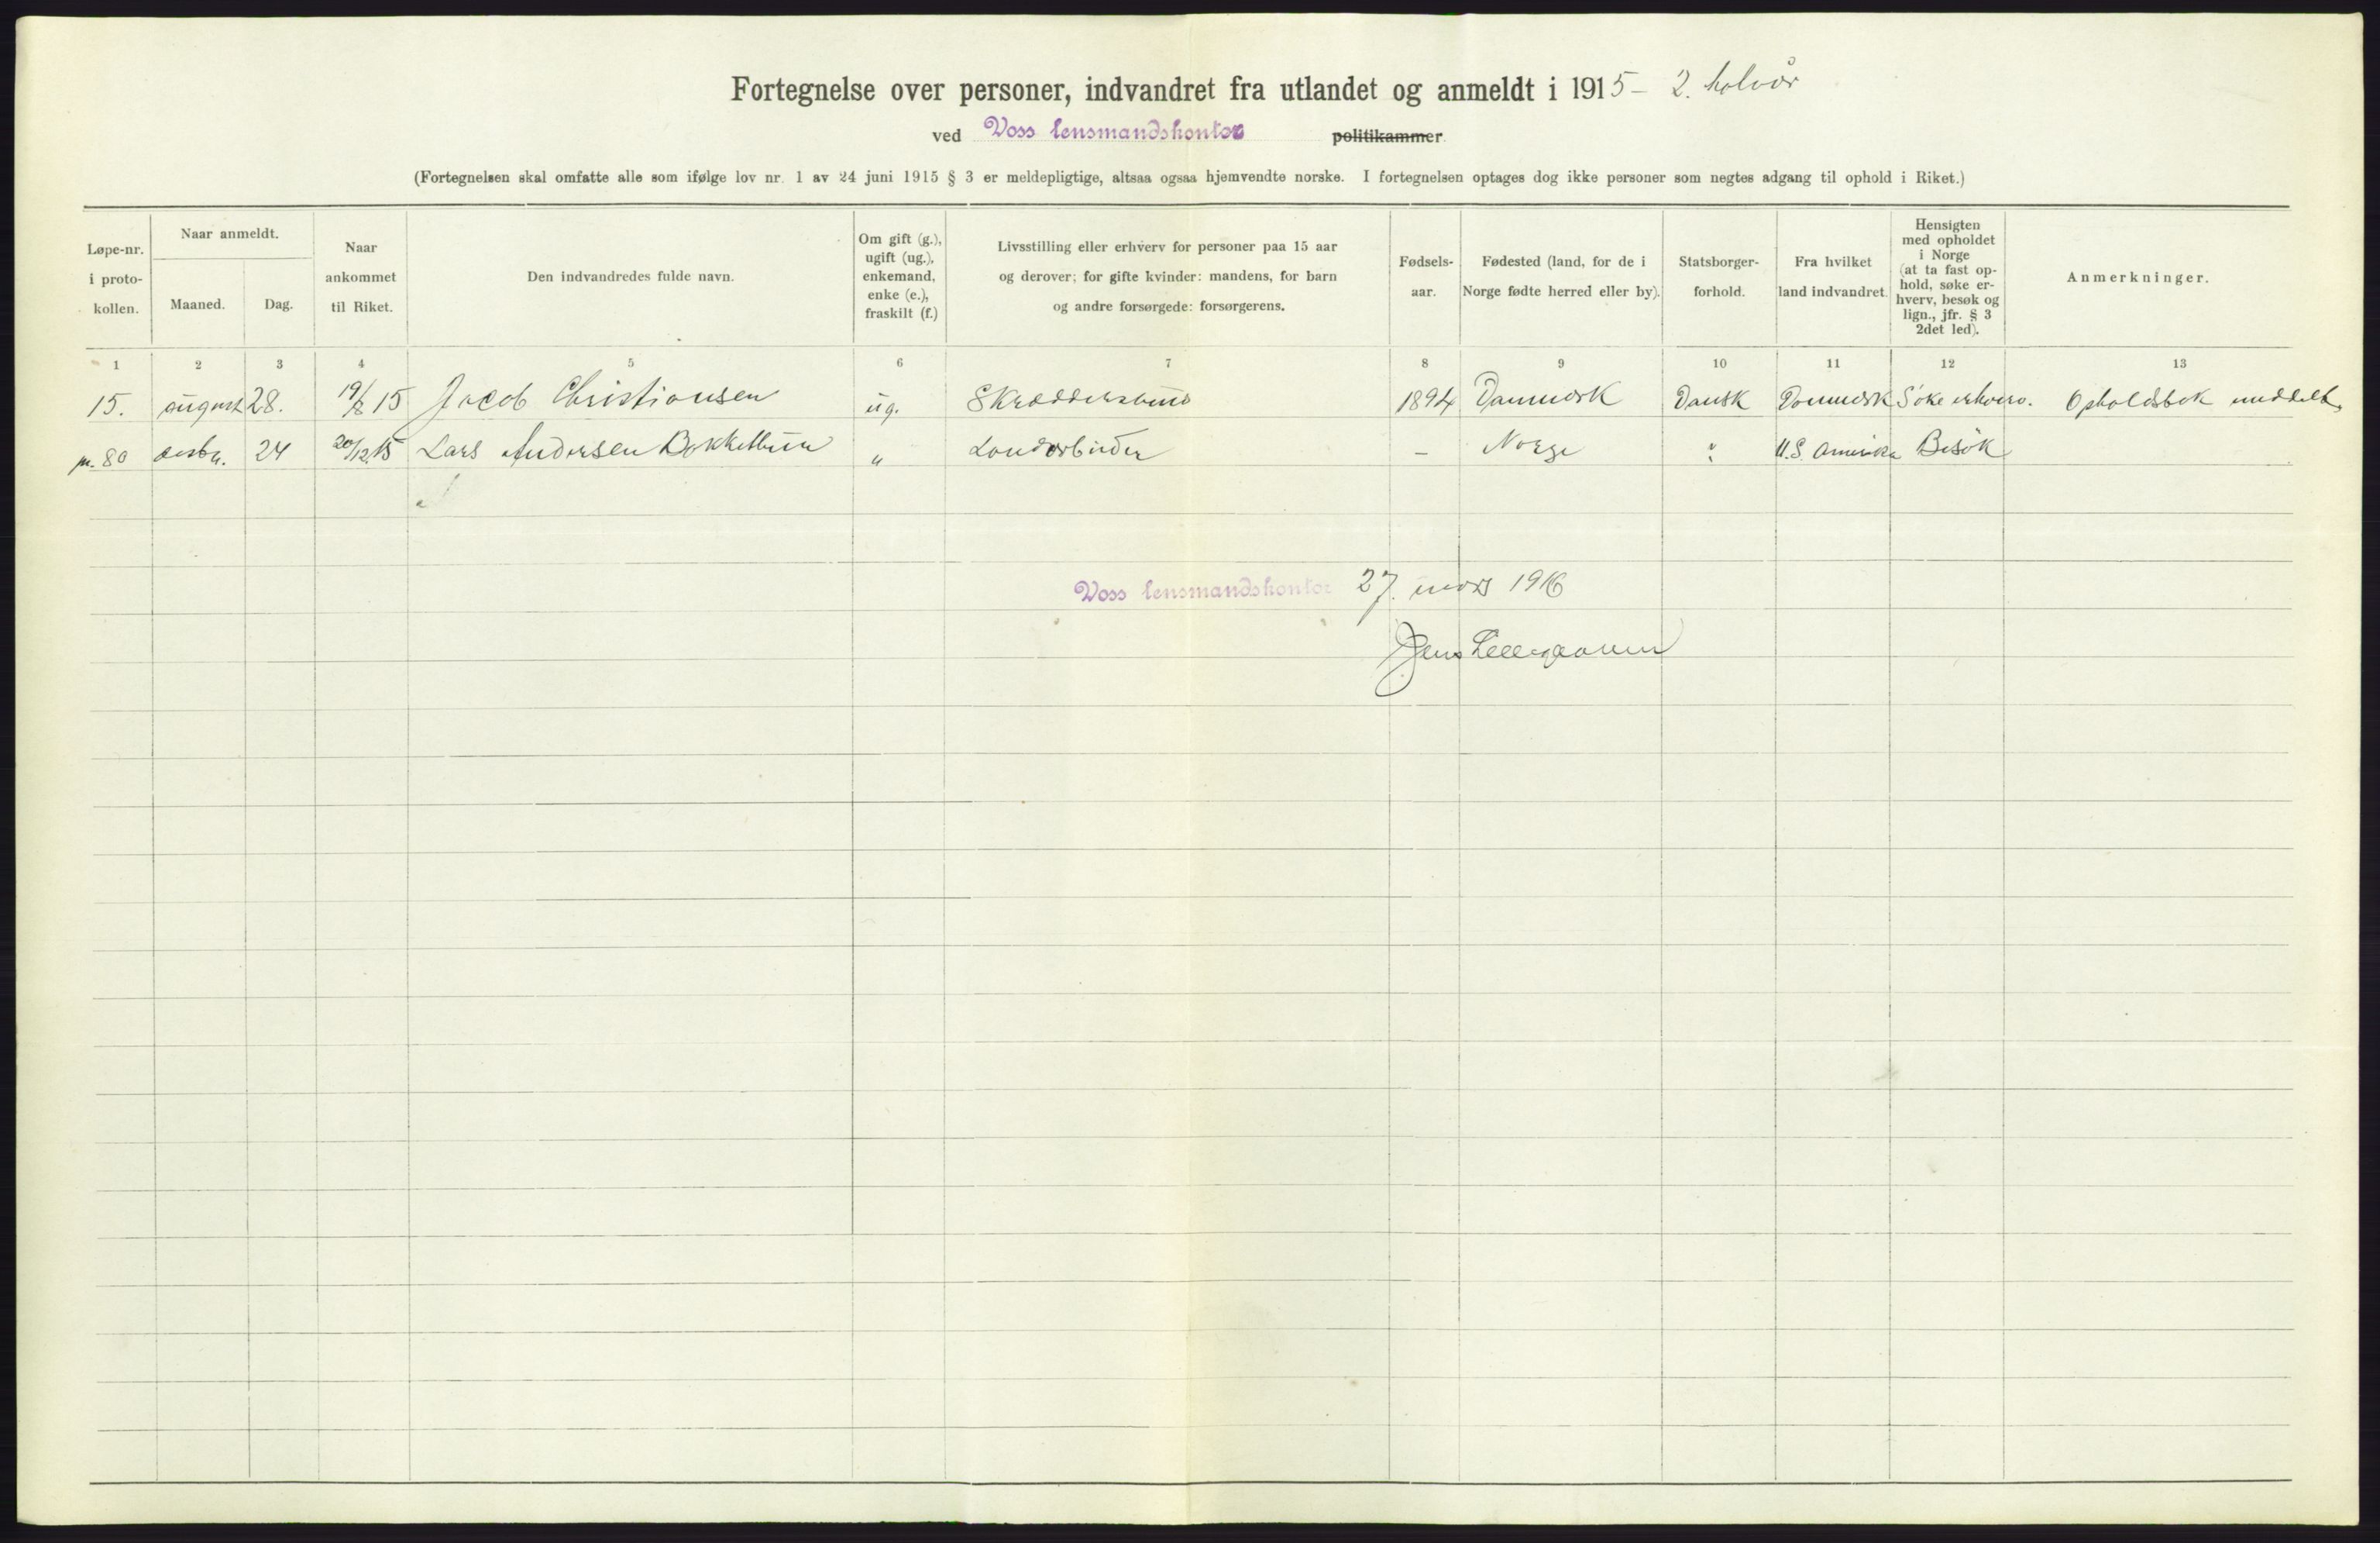 Fortegnelse over personer, indvandret fra utlandet og anmeldt i 1915 - 2. halvår
ved Voss lensmandskontor politikammer
(Fortegnelsen skal omfatte alle som ifølge lov nr. 1 av 24 juni 1915 § 3 er meldepligtige, altsaa ogsaa hjemvendte norske. I fortegnelsen optages dog ikke personer som negtes adgang til ophold i Riket.)
Løpe-nr. i proto- kollen.
Naar anmeldt.
Maaned.
Dag.
Naar ankommet til Riket.
Den indvandredes fulde navn.
Om gift (g.), ugift (ug.), enkemand, enke (e.), fraskilt (f.)
Livsstilling eller erhverv for personer paa 15 aar
og derover; for gifte kvinder: mandens, for barn
og andre forsørgede: forsørgerens.
Fødsels- aar.
Fødested (land, for de i Norge fødte herred eller by).
Statsborger- forhold.
Fra hvilket land indvandret.
Hensigten med opholdet i Norge (at ta fast op- hold, søke er- hverv, besøk og lign., jfr. § 3 2det led).
Anmerkninger.
1 2 3 4 5 6 7 8 9 10 11 12 13
15. august 28. 19/8 15 Jacob Christiansen ug. Skræddersvend 1894 Danmark Dansk Danmark Söke erhverv. Opholdsbok meddelt.
80 24 20/12 15 Lars Andersen Bokkethun " Landarbeider - Norge " U.S. Amerika Besök
Voss lensmandskontor 27. mars 1916
Jens